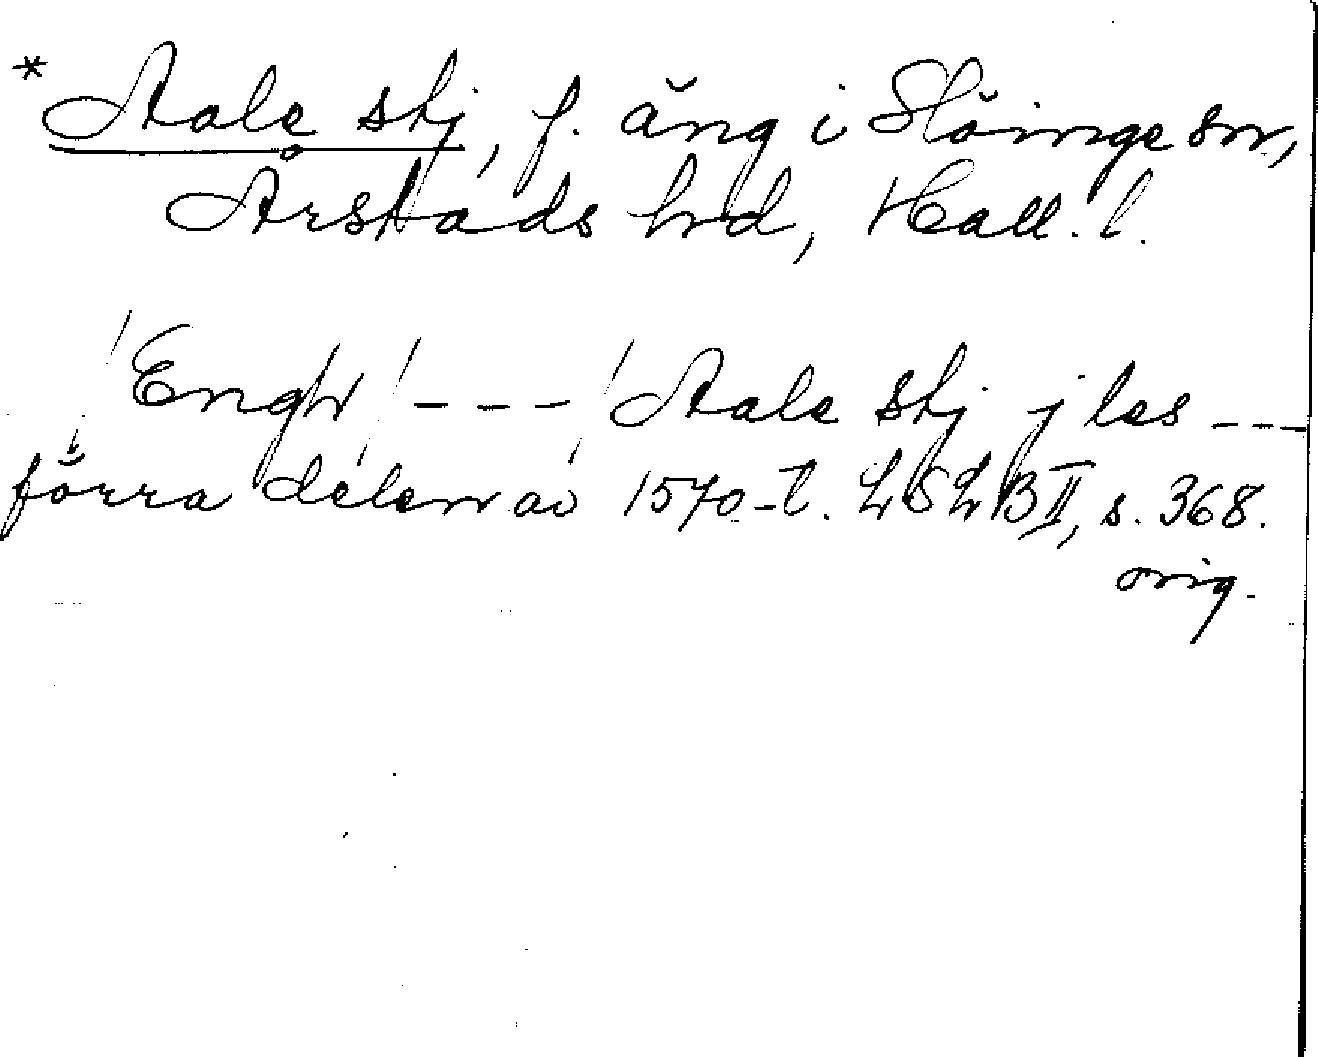 * Aale stj, f. äng i Slöinge sn,
Årstads hrd, Hall. l.
/Engh/ - - - /Aale stj j les - - -
förra delen av 1570-t. LSLB II, s. 368.
orig.